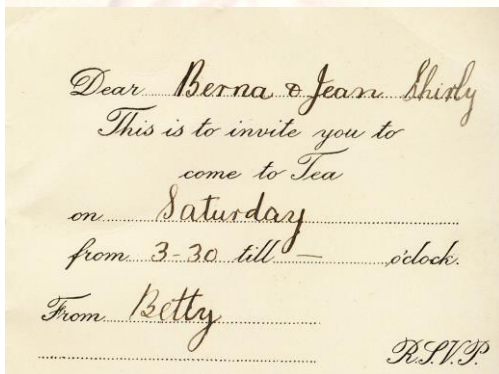 Dear Berna & Jean Shirly
This is to invite you to
come to Tea
on Saturday
from 3-30 till — o'clock.
From Betty
R.S.V.P.